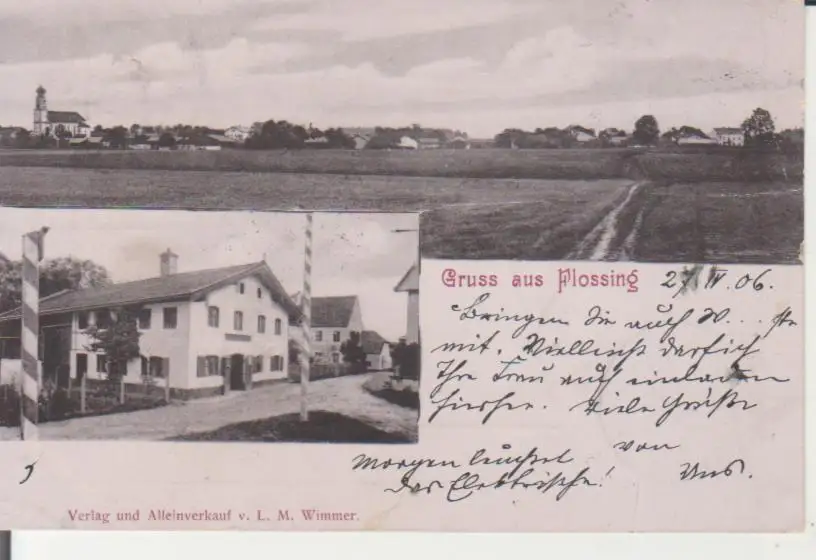 Gruss aus Plossing
27 IV. 06.
Bringen Sie auch W... ste
mit. Vielleicht darf ich
Ihre Frau auch einladen
hierher. Viele Grüße
von
Uns.
Morgen leuchtet
das Elektrische!
Verlag und Alleinverkauf v. L. M. Wimmer.